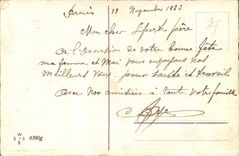 Paris 11 Novembre 1922
Mon cher père
a l'occasion de votre bonne fête
ma femme et Moi vous envoyons nos
Meilleurs Vœux pour Santé et travail
avec nos amitiés a toute votre famille
W
S S
B
4390g